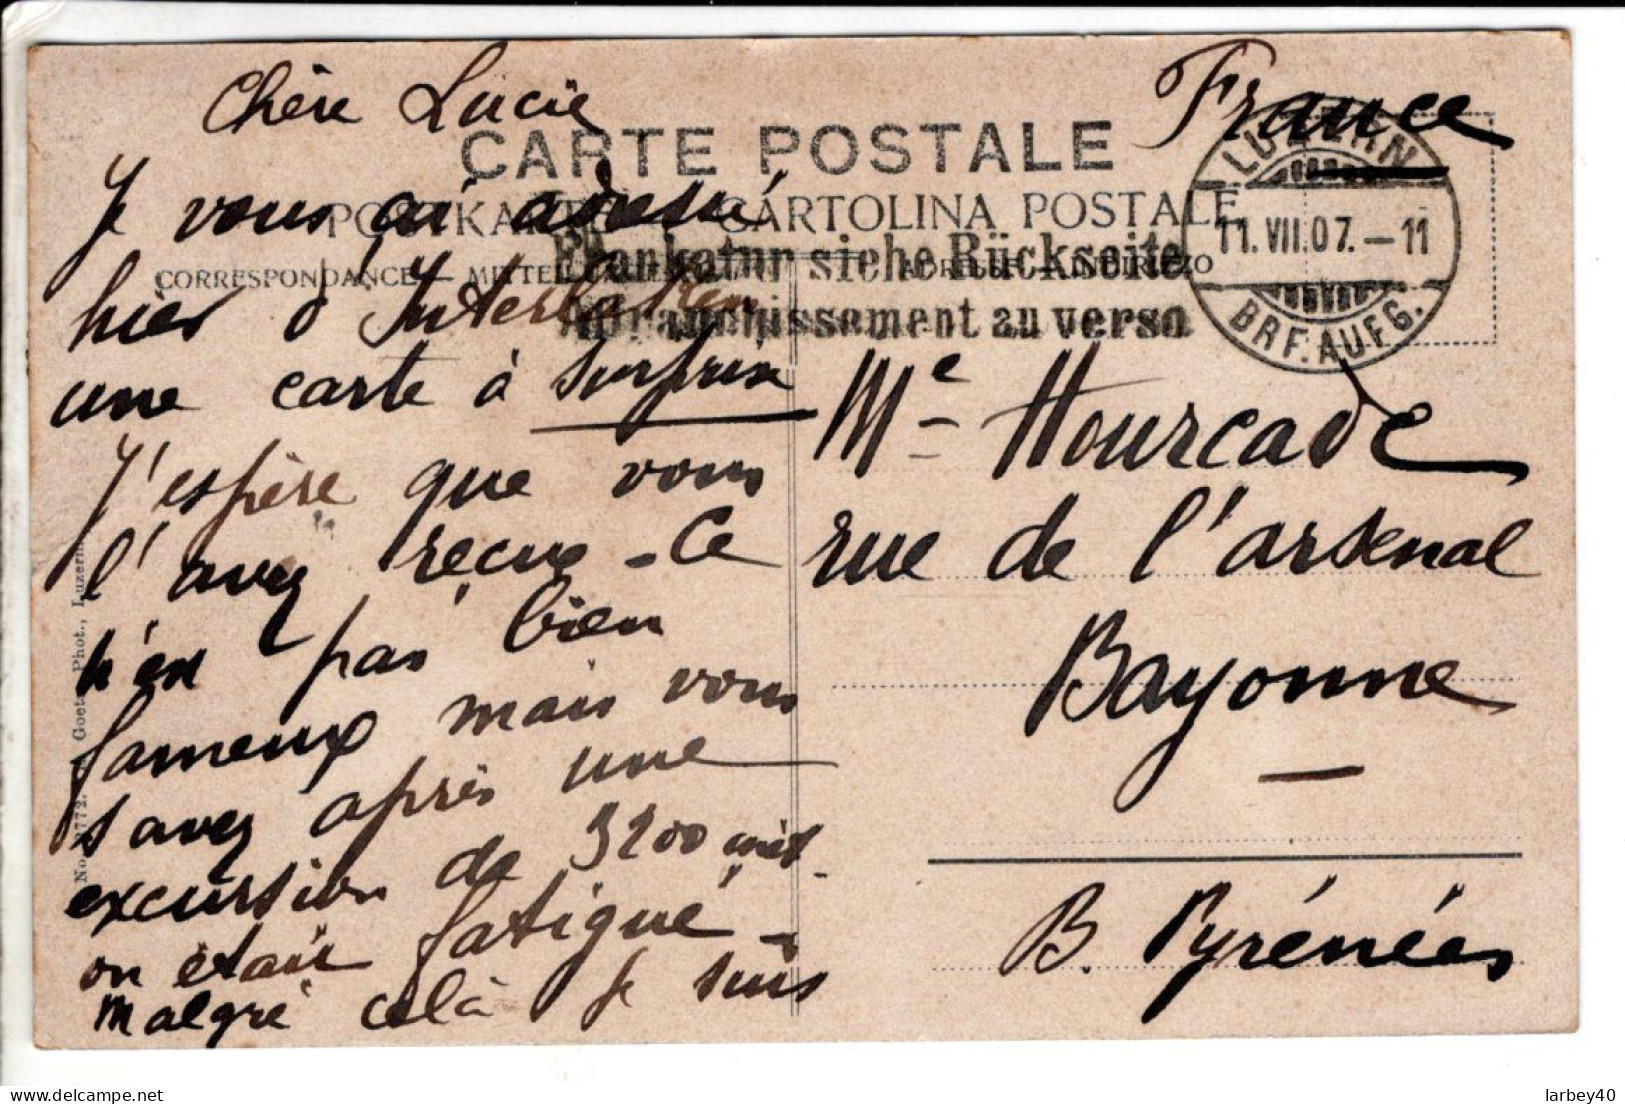 Chère Lucie
France
CARTE POSTALE
POSTKARTE CARTOLINA POSTALE
CORRESPONDANCE — MITTEILUNG INDIRIZZO
Frankatur siehe Rückseite
Affranchissement au verso
LUZERN
11.VII.07.–11
BRF.AUFG.
Je vous ai adressé
hier d'Interlaken
une carte à surprix
J'espère que vous
l'avez reçue - Ce
n'est pas bien
fameux mais vous
savez après une
excursion de 3200 mèt.
on était fatigué -
Malgré celà je suis
Me Hourcade
rue de l'arsenal
Bayonne
B. Pyrénées
Goetz Phot., Luzern
larbey40